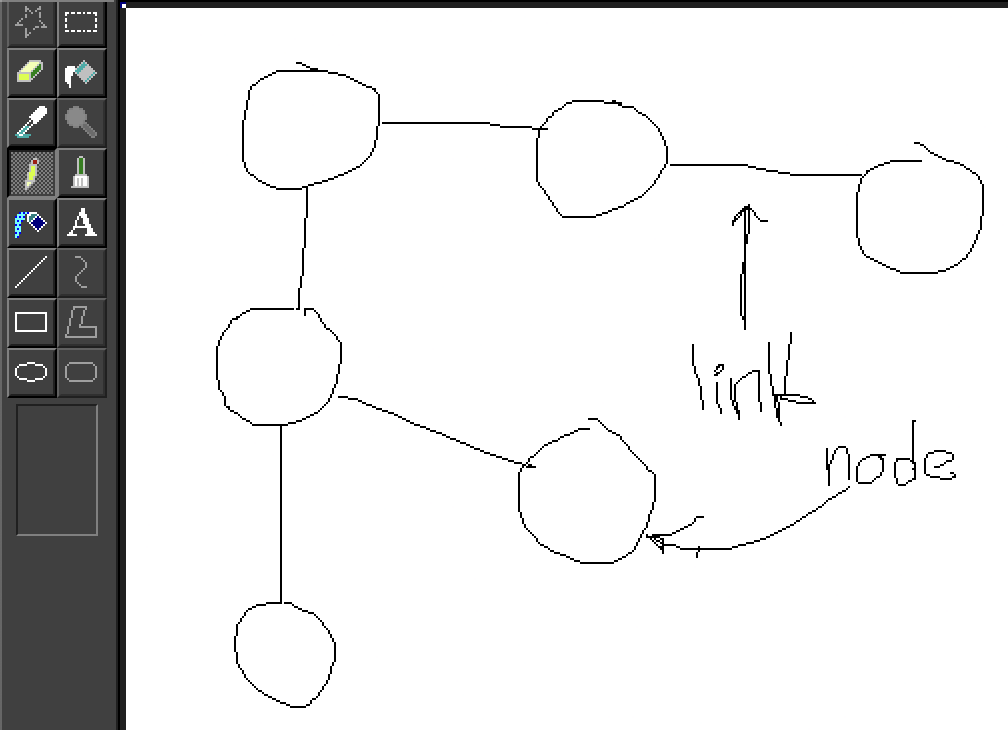 link
node